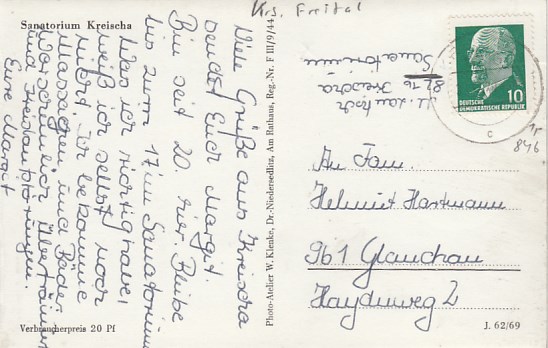 Krs. Freital
Sanatorium Kreischa
Viele Grüße aus Kreischa
sendet Euch Margit.
Bin seit 20. hier. Bleibe
bis zum 17. im Sanatorium
Was ich richtig habe,
weiß ich selbst noch
nicht. Ich bekomme
Massagen und Bäder
Eure Margit
Verbraucherpreis 20 Pf
Photo-Atelier W. Klenke, Dr.-Niedersedlitz, Am Rathaus, Reg.-Nr. F III/9/44
8216 Kreischa
Sanatorium
DEUTSCHE
DEMOKRATISCHE REPUBLIK
10
c
An Fam.
Helmut Hartmann
961 Glauchau
Haydnweg 2
J. 62/69